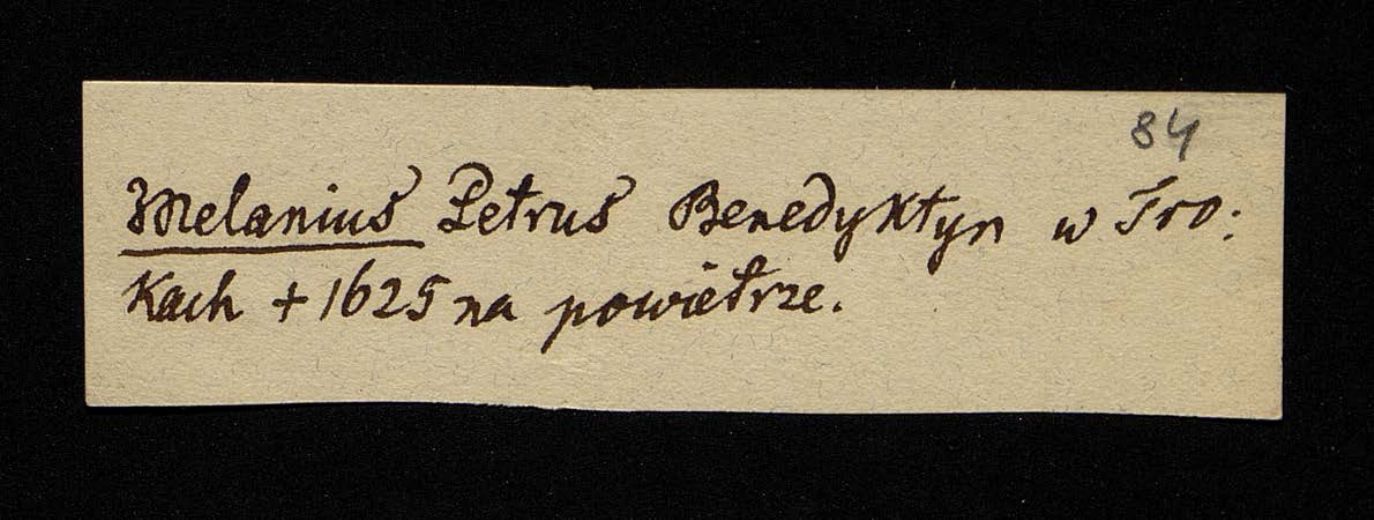 84
Melanius Petrus Benedyktyn w Tro:
Kach + 1625 na powietrze.